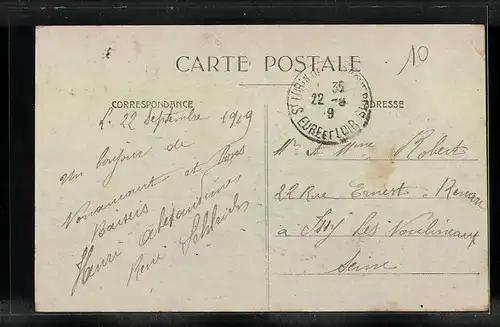 CARTE POSTALE
10
CORRESPONDANCE
ADRESSE
Le 22 Septembre 1919
un bonjour de
Nonancourt et
Baisers
Henri Alexandrine
René
35
22 -9
9
EURE ET LOIR
Mr et Mme Robert
22 Rue Ernest Renan
à Issy Les Moulineaux
Seine